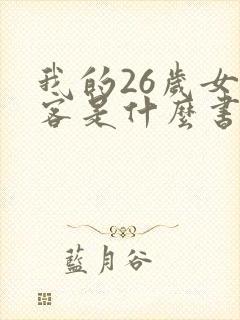 我的26歲女
客是什麼書
藍月谷